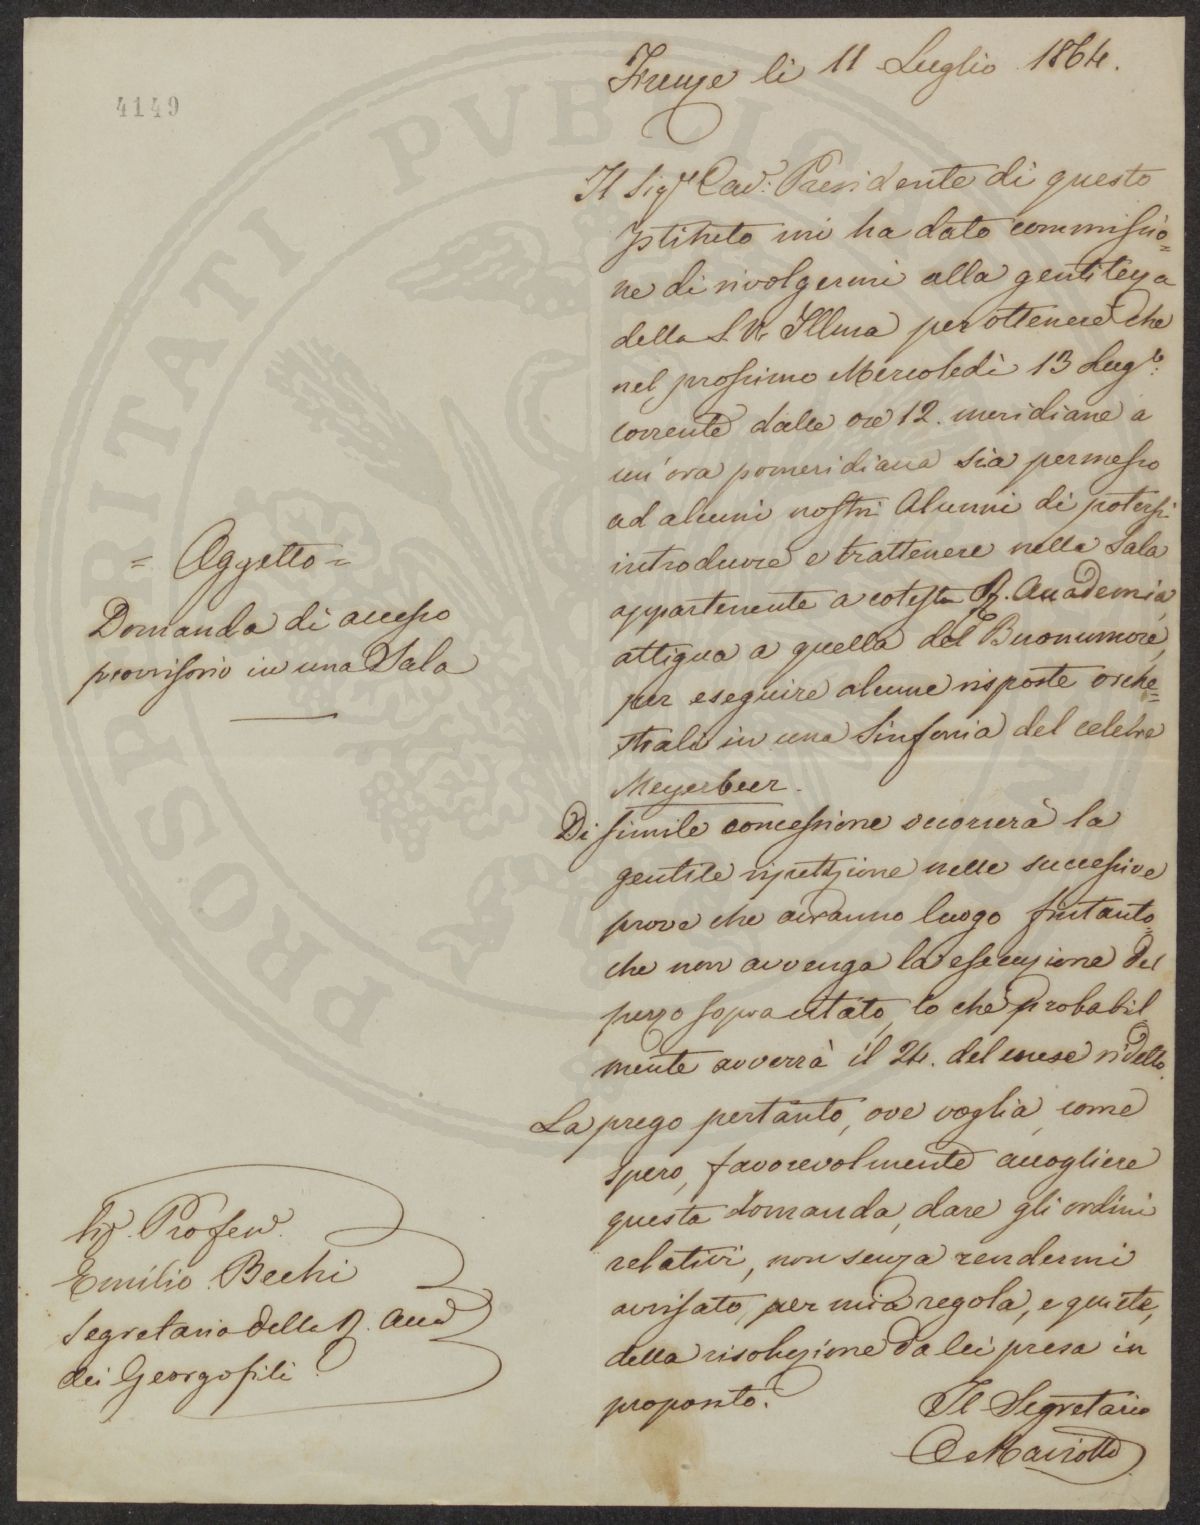 4149
Firenze li 11 Luglio 1864.
Il Sigre Cav: Presidente di questo
Istituto mi ha dato commissio=
ne di rivolgermi alla gentilezza
della S. V. Illma per ottenere che
nel prossimo Mercoledì 13 Lugo:
corrente dalle ore 12. meridiane a
un'ora pomeridiana sia permesso
ad alcuni nostri Alunni di potersi
introdurre e trattenere nella Sala
appartenente a cotesta R. Accademia,
attigua a quella del Buonumore,
per eseguire alcune risposte orche=
strali in una Sinfonia del celebre
Meyerbeer.
Di simile concessione occorrerà la
gentile ripetizione nelle successive
prove che avranno luogo fintanto
che non avvenga la esecuzione del
pezzo sopracitato, lo che probabil
mente avverrà il 24. del mese ridetto.
La prego pertanto, ove voglia, come
spero, favorevolmente accogliere
questa domanda, dare gli ordini
relativi, non senza rendermi
avvisato, per mia regola, e quiete,
della risoluzione da lei presa in
proposito.
Il Segretario
O Mariotti
= Oggetto =
Domanda di accesso
provvisorio in una Sala
Profess.
Emilio Bechi
Segretario della R. Accad
dei Georgofili
PROSPERITATI PVBLICAE